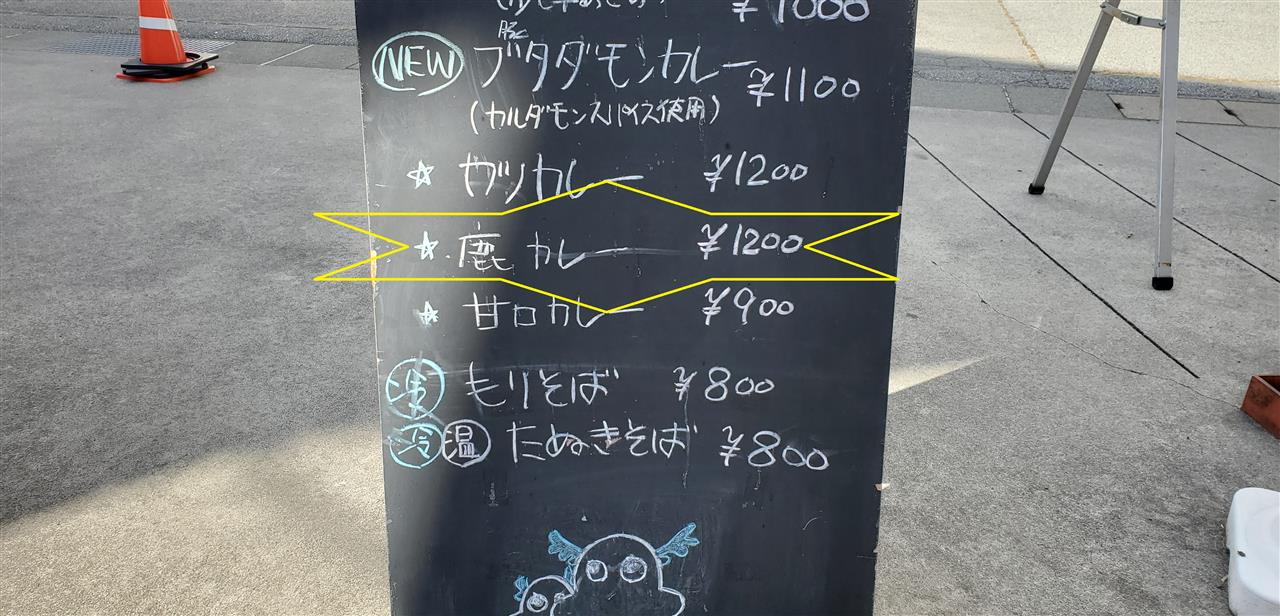 ¥1000
豚
NEW ブタダモンカレー ¥1100
(カルダモンスパイス使用)
☆ カツカレー ¥1200
☆ 鹿カレー ¥1200
☆ 甘口カレー ¥900
もりそば ¥800
冷 温 たぬきそば ¥800